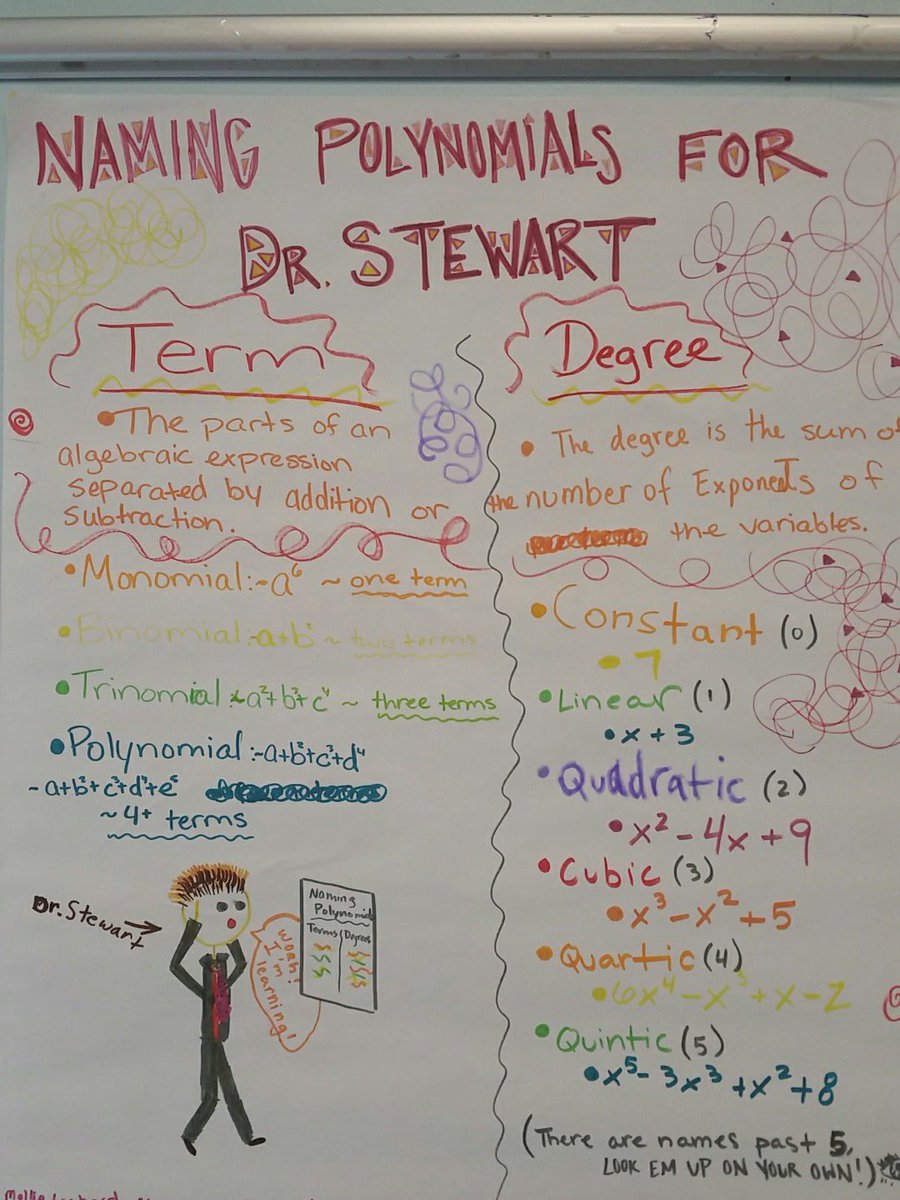 NAMING POLYNOMIALS FOR
DR. STEWART
Term
•The parts of an
algebraic expression
separated by addition or
subtraction.
•Monomial:~a⁶ ~ one term
•Binomial:~a+b² ~ two terms
•Trinomial:~a²+b³+c⁴ ~ three terms
•Polynomial:~a+b²+c³+d⁴
~a+b²+c³+d⁴+e⁵
~4+ terms
Dr. Stewart
Woah!
I'm
learning!
Naming
Polynomial
Terms Degrees
Degree
• The degree is the sum of
the number of Exponents of
the variables.
•Constant (0)
•7
•Linear (1)
•x + 3
•Quadratic (2)
•x² - 4x + 9
•Cubic (3)
•x³ - x² + 5
•Quartic (4)
•6x⁴ - x³ + x - 2
•Quintic (5)
•x⁵ - 3x³ + x² + 8
(There are names past 5,
LOOK EM UP ON YOUR OWN!)
Mollie